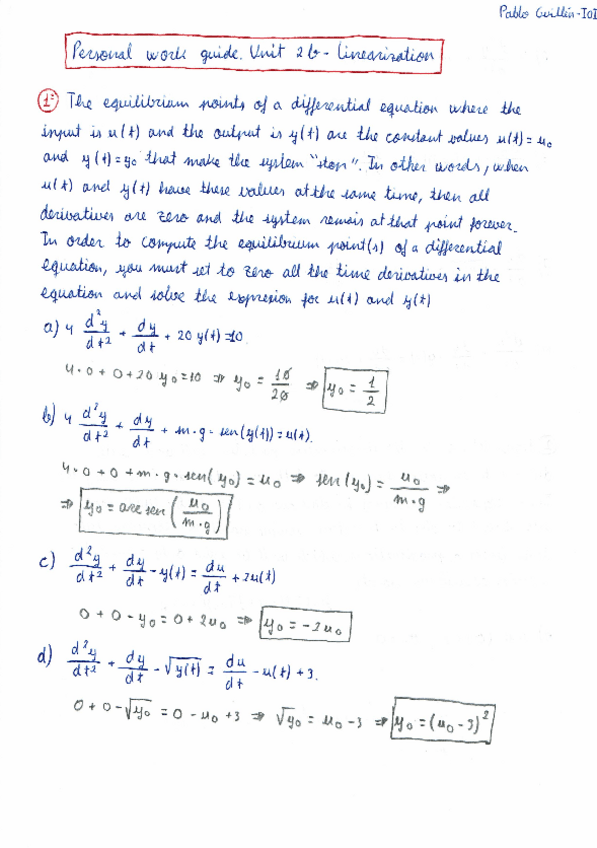 Pablo Guillén-IOI
Personal work guide. Unit 2b - Linearization
1º The equilibrium points of a differential equation where the
input is u(t) and the output is y(t) are the constant values u(t)=u₀
and y(t)=y₀ that make the system "stop". In other words, when
u(t) and y(t) have these values at the same time, then all
derivatives are zero and the system remais at that point forever.
In order to compute the equilibrium point(s) of a differential
equation, you must set to zero all the time derivatives in the
equation and solve the expresion for u(t) and y(t)
a) 4 d²y/dt² + dy/dt + 20 y(t)=10.
4·0 + 0 + 20 y₀ = 10 ⇒ y₀ = 10/20 ⇒ y₀ = 1/2
b) 4 d²y/dt² + dy/dt + m·g·sen(y(t)) = u(t).
4·0 + 0 + m·g·sen(y₀) = u₀ ⇒ sen(y₀) = u₀/m·g ⇒
⇒ y₀ = arc sen(u₀/m·g)
c) d²y/dt² + dy/dt - y(t) = du/dt + 2u(t)
0 + 0 - y₀ = 0 + 2u₀ ⇒ y₀ = -2u₀
d) d²y/dt² + dy/dt - √y(t) = du/dt - u(t) + 3.
0 + 0 - √y₀ = 0 - u₀ + 3 ⇒ √y₀ = u₀ - 3 ⇒ y₀ = (u₀ - 3)²